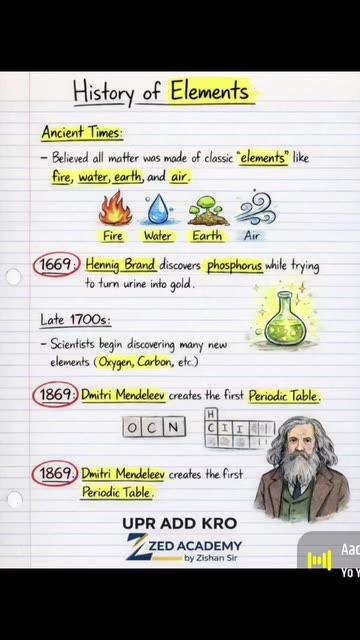 History of Elements
Ancient Times:
- Believed all matter was made of classic "elements" like
fire, water, earth, and air.
Fire Water Earth Air
1669: Hennig Brand discovers phosphorus while trying
to turn urine into gold.
Late 1700s:
- Scientists begin discovering many new
elements (Oxygen, Carbon, etc.)
1869: Dmitri Mendeleev creates the first Periodic Table.
H
O C N
C I I
1869: Dmitri Mendeleev creates the first
Periodic Table.
UPR ADD KRO
ZED ACADEMY
by Zishan Sir
Aac
Yo Y